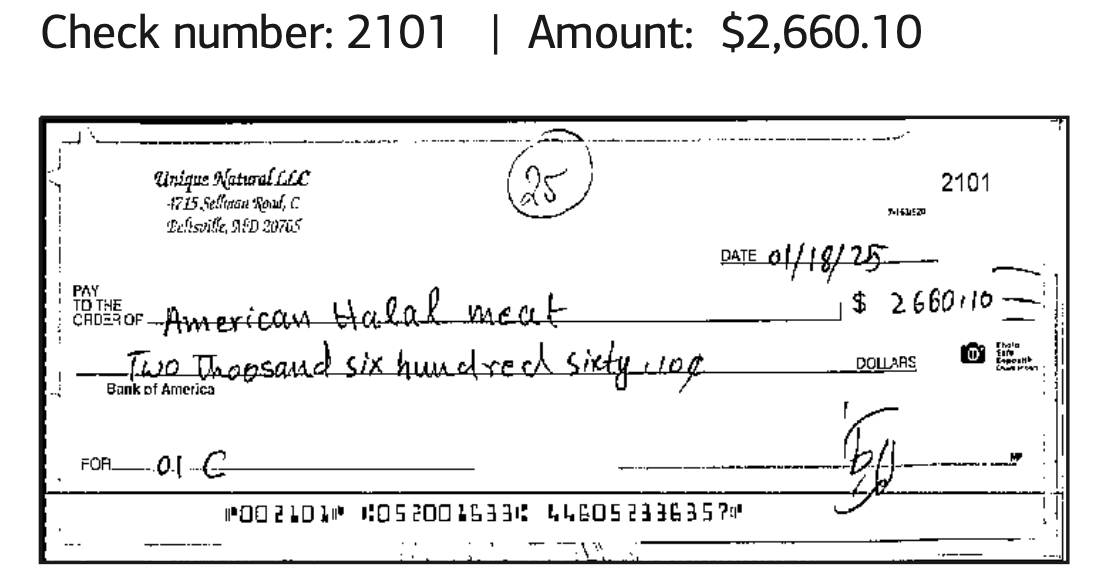 Check number: 2101 | Amount: $2,660.10
25
Unique Natural LLC
4715 Sellman Road, C
Beltsville, MD 20705
2101
DATE 01/18/25
PAY TO THE ORDER OF American Halal meat $ 2660.10
Two Thoosand six hundred sixty 10¢ DOLLARS
Photo Safe Deposit
Bank of America
FOR 01 C
MP
002101 052001633 446052336357